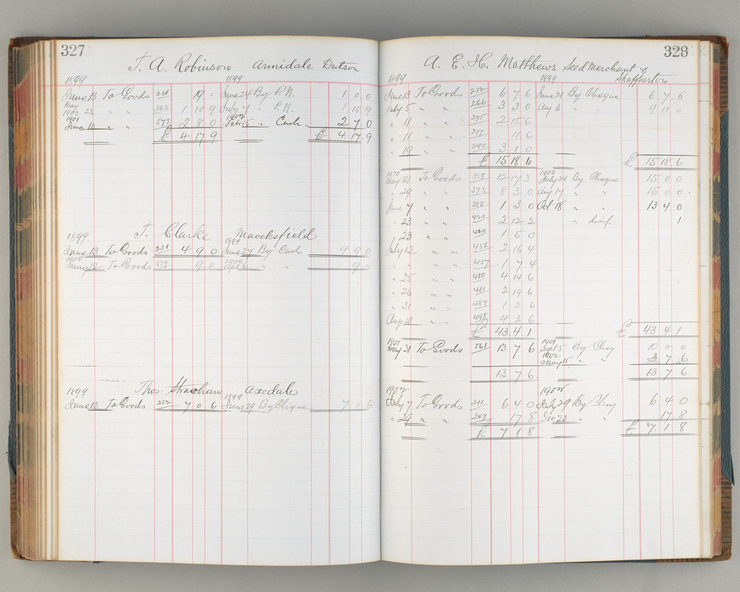 327
T. A. Robinson Annidale Dutson
1899 1899
June 13 To Goods 231 19 0 June 24 By P.N. 1 0 0
563 1 10 9 July 7 " P.N. 1 10 9
1901 573 2 8 0 Cash 2 7 0
£ 4 17 9 £ 4 17 9
T. Clarke Maccksfield
1899 1899
June 13 To Goods 231 4 9 0 June 24 By Cash 4 9 0
To Goods 9 0 " " 9 0
Thos. Strachan Axedale
1899 1899
June 13 To Goods 232 7 0 6 June 29 By Cheque 7 0 6
328
A. E. H. Matthews Seed Merchant &
Shepparton
1899 1899
June 13 To Goods 232 6 7 6 June 21 By Cheque 6 7 6
July 5 " " 266 3 3 0 Aug 2 " 9 11 0
" 11 " " 275 2 15 6
" 11 " " 11 6
" 19 " " 290 3 1 0
£ 15 18 6 £ 15 18 6
May 21 To Goods 12 17 3 July 24 By Cheque 15 0 0
" 29 " " 8 3 0 Aug 17 " 15 0 0
June 7 " " 1 3 0 Oct 18 " 13 4 0
" 23 " " 2 12 2 " 1
" 23 " " 1 5 0
July 12 " " 2 16 4
" " " 457 1 7 4
" 25 " " 4 14 6
" 26 " " 2 19 6
" 31 " " 1 2 6
Aug 10 " " 4 3 6
£ 43 4 1 £ 43 4 1
1901 1901
May 31 To Goods 561 13 7 6 By Chq 10 0 0
1902
" 3 7 6
13 7 6 13 7 6
1902 1902
July 7 To Goods 211 6 4 0 July 29 By Chq 6 4 0
" 29 " " 257 17 8 Dec 23 " " 17 8
£ 7 1 8 £ 7 1 8